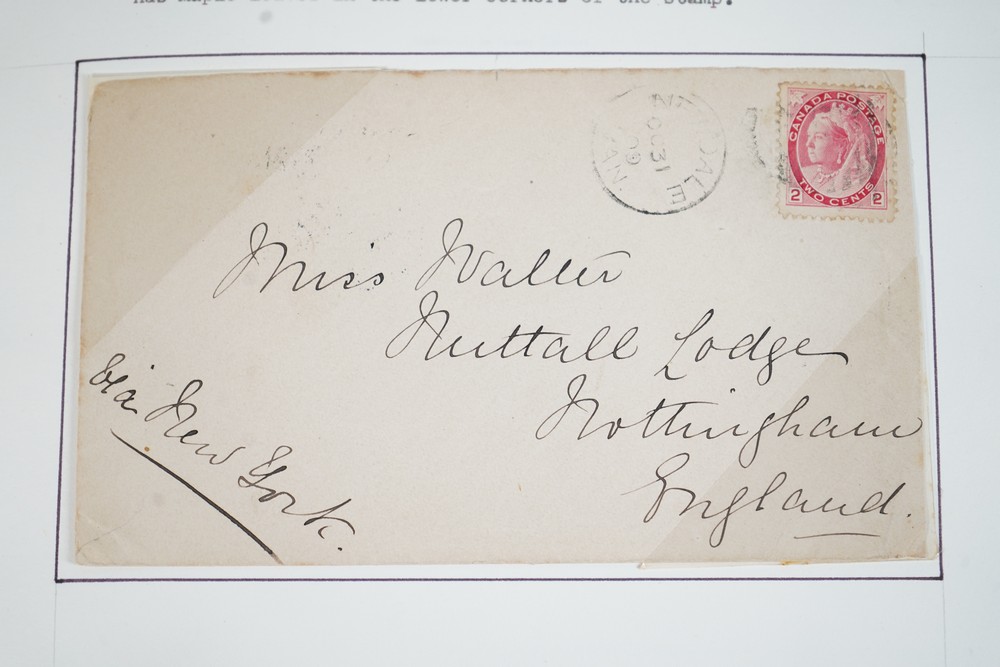 has maple leaves in the lower corners of the stamp.
CANADA POSTAGE
2 TWO CENTS 2
OC 31
00
DALE
Miss Waller
Nuttall Lodge
Nottingham
England.
via New York.